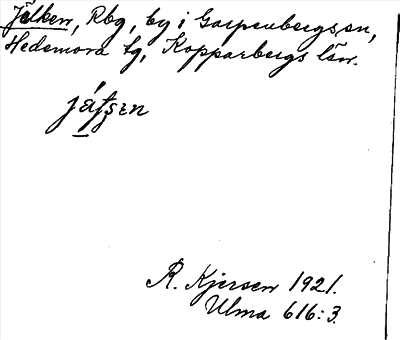 Jälken, Rbg, by i Garpenbergs sn,
Hedemora tg, Kopparbergs län.
R. Kjersen 1921.
Ulma 616:3.